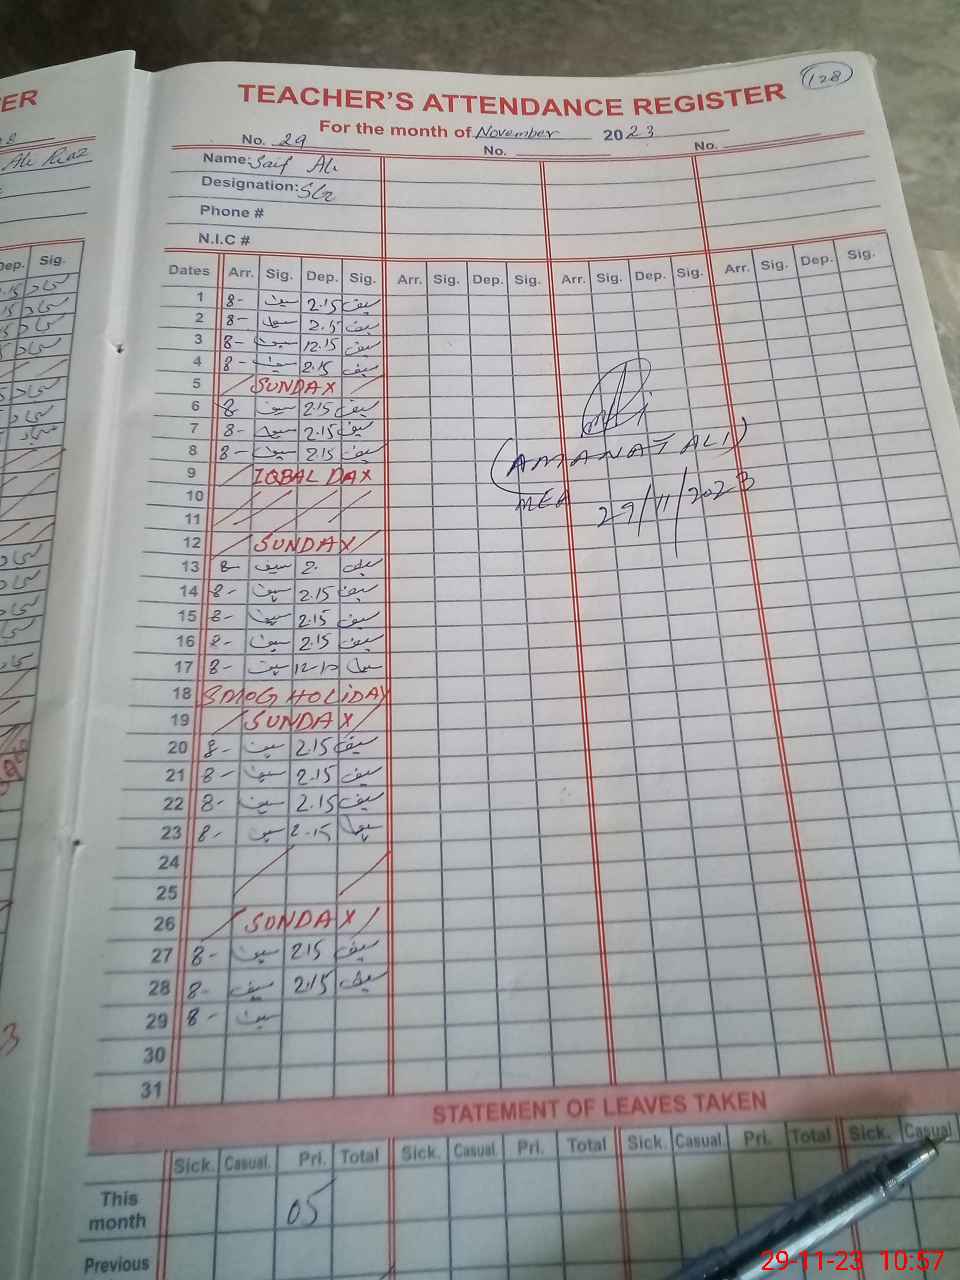 ER
Ali Riaz
Dep. Sig.
128
TEACHER'S ATTENDANCE REGISTER
For the month of November 2023
No. 29 No. No.
Name: Saif Ali
Designation:
Phone #
N.I.C #
Dates Arr. Sig. Dep. Sig. Arr. Sig. Dep. Sig. Arr. Sig. Dep. Sig. Arr. Sig. Dep. Sig.
1 8- سیف 2.15 سیف
2 8- سیف 2.15 سیف
3 8- سیف 12.15 سیف
4 8- سیف 2.15 سیف
5 SUNDAY
6 8 سیف 2.15 سیف
7 8- سیف 2.15 سیف
8 8- سیف 2.15 سیف
9 IQBAL DAY
10
11
12 SUNDAY
13 8- سیف 2. سیف
14 8- سیف 2.15 سیف
15 8- سیف 2.15 سیف
16 8- سیف 2.15 سیف
17 8- سیف سیف
18 SMOG HOLIDAY
19 SUNDAY
20 8- سیف 2.15 سیف
21 8- سیف 2.15 سیف
22 8- سیف 2.15 سیف
23 8- سیف 2.15 سیف
24
25
26 SUNDAY
27 8- سیف 215 سیف
28 8- سیف 2.15 سیف
29 8- سیف
30
31
(AMANAT ALI)
MEA
29/11/2023
STATEMENT OF LEAVES TAKEN
Sick. Casual. Pri. Total Sick. Casual. Pri. Total Sick. Casual. Pri. Total Sick. Casual.
This month 05
Previous
29-11-23 10:57